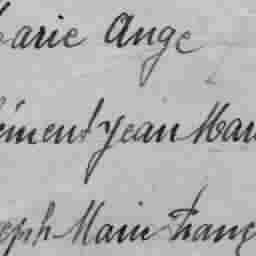 Marie Ange
ément Jean Mar
seph Marie Franç